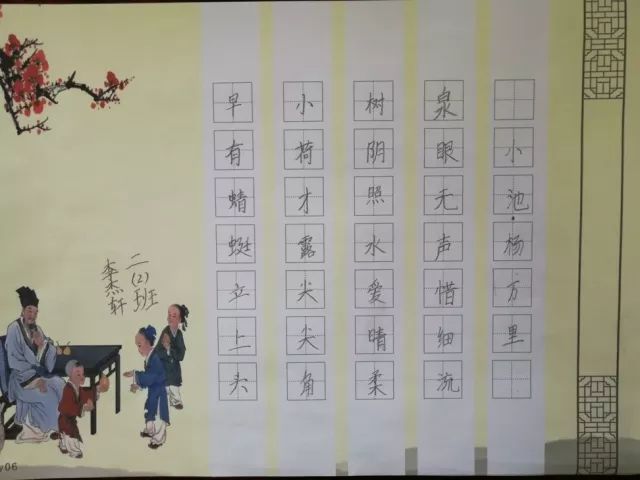 小池·杨万里
泉眼无声惜细流
树阴照水爱晴柔
小荷才露尖尖角
早有蜻蜓立上头
二(2)班
李杰轩
y06